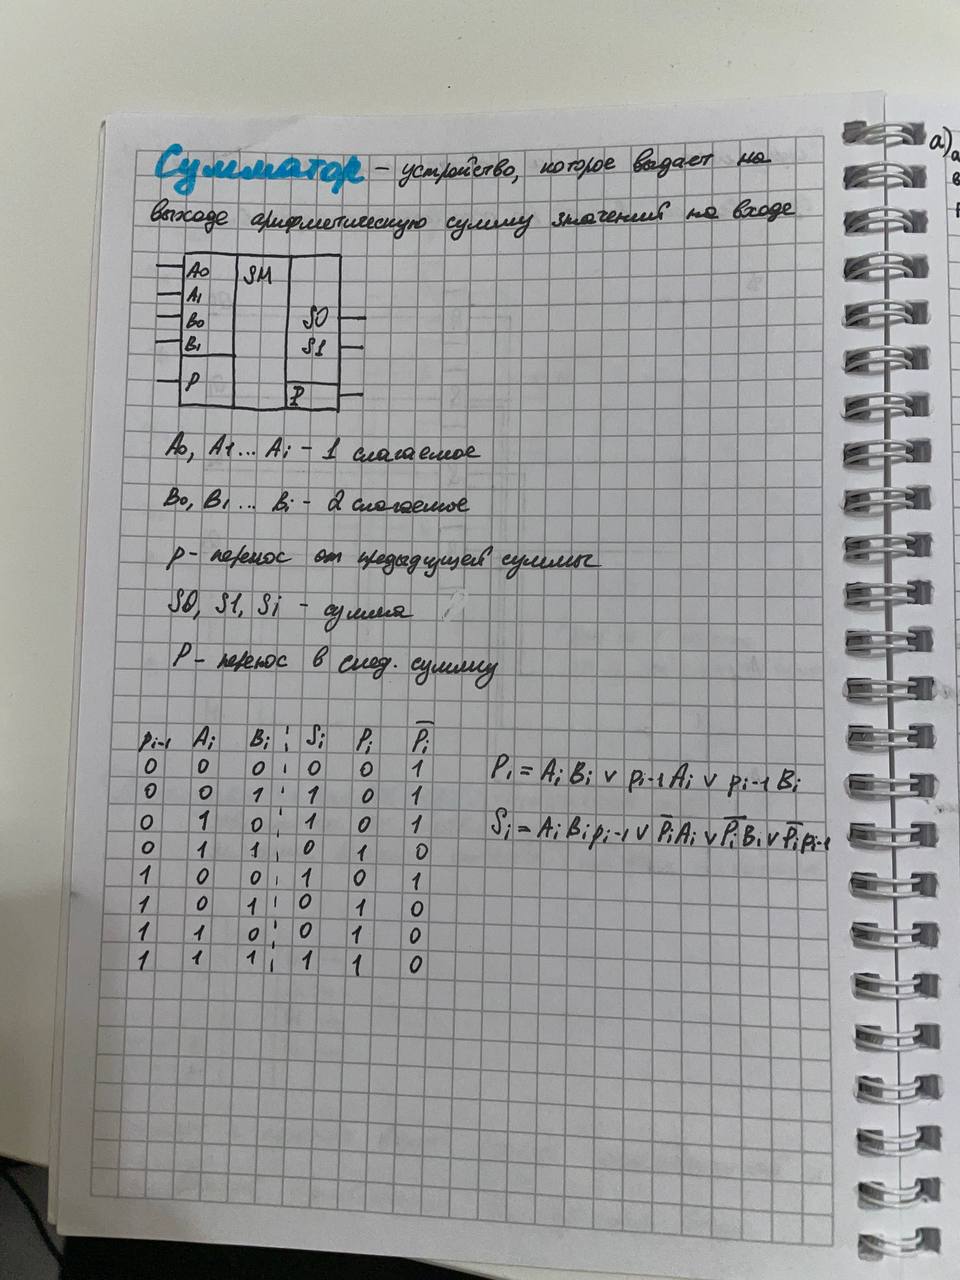 Сумматор – устройство, которое выдает на
выходе арифметическую сумму значений на входе
A0 SM
A1
B0 S0
B1 S1
P P
A0, A1... Ai – 1 слагаемое
B0, B1 ... Bi – 2 слагаемое
p – перенос от предыдущей суммы
S0, S1, Si – сумма
P – перенос в след. сумму
pi-1 Ai Bi Si Pi P̅i
0 0 0 0 0 1
0 0 1 1 0 1
0 1 0 1 0 1
0 1 1 0 1 0
1 0 0 1 0 1
1 0 1 0 1 0
1 1 0 0 1 0
1 1 1 1 1 0
Pi = Ai Bi v pi-1 Ai v pi-1 Bi
Si = Ai Bi pi-1 v P̅i Ai v P̅i Bi v P̅i pi-1
а)